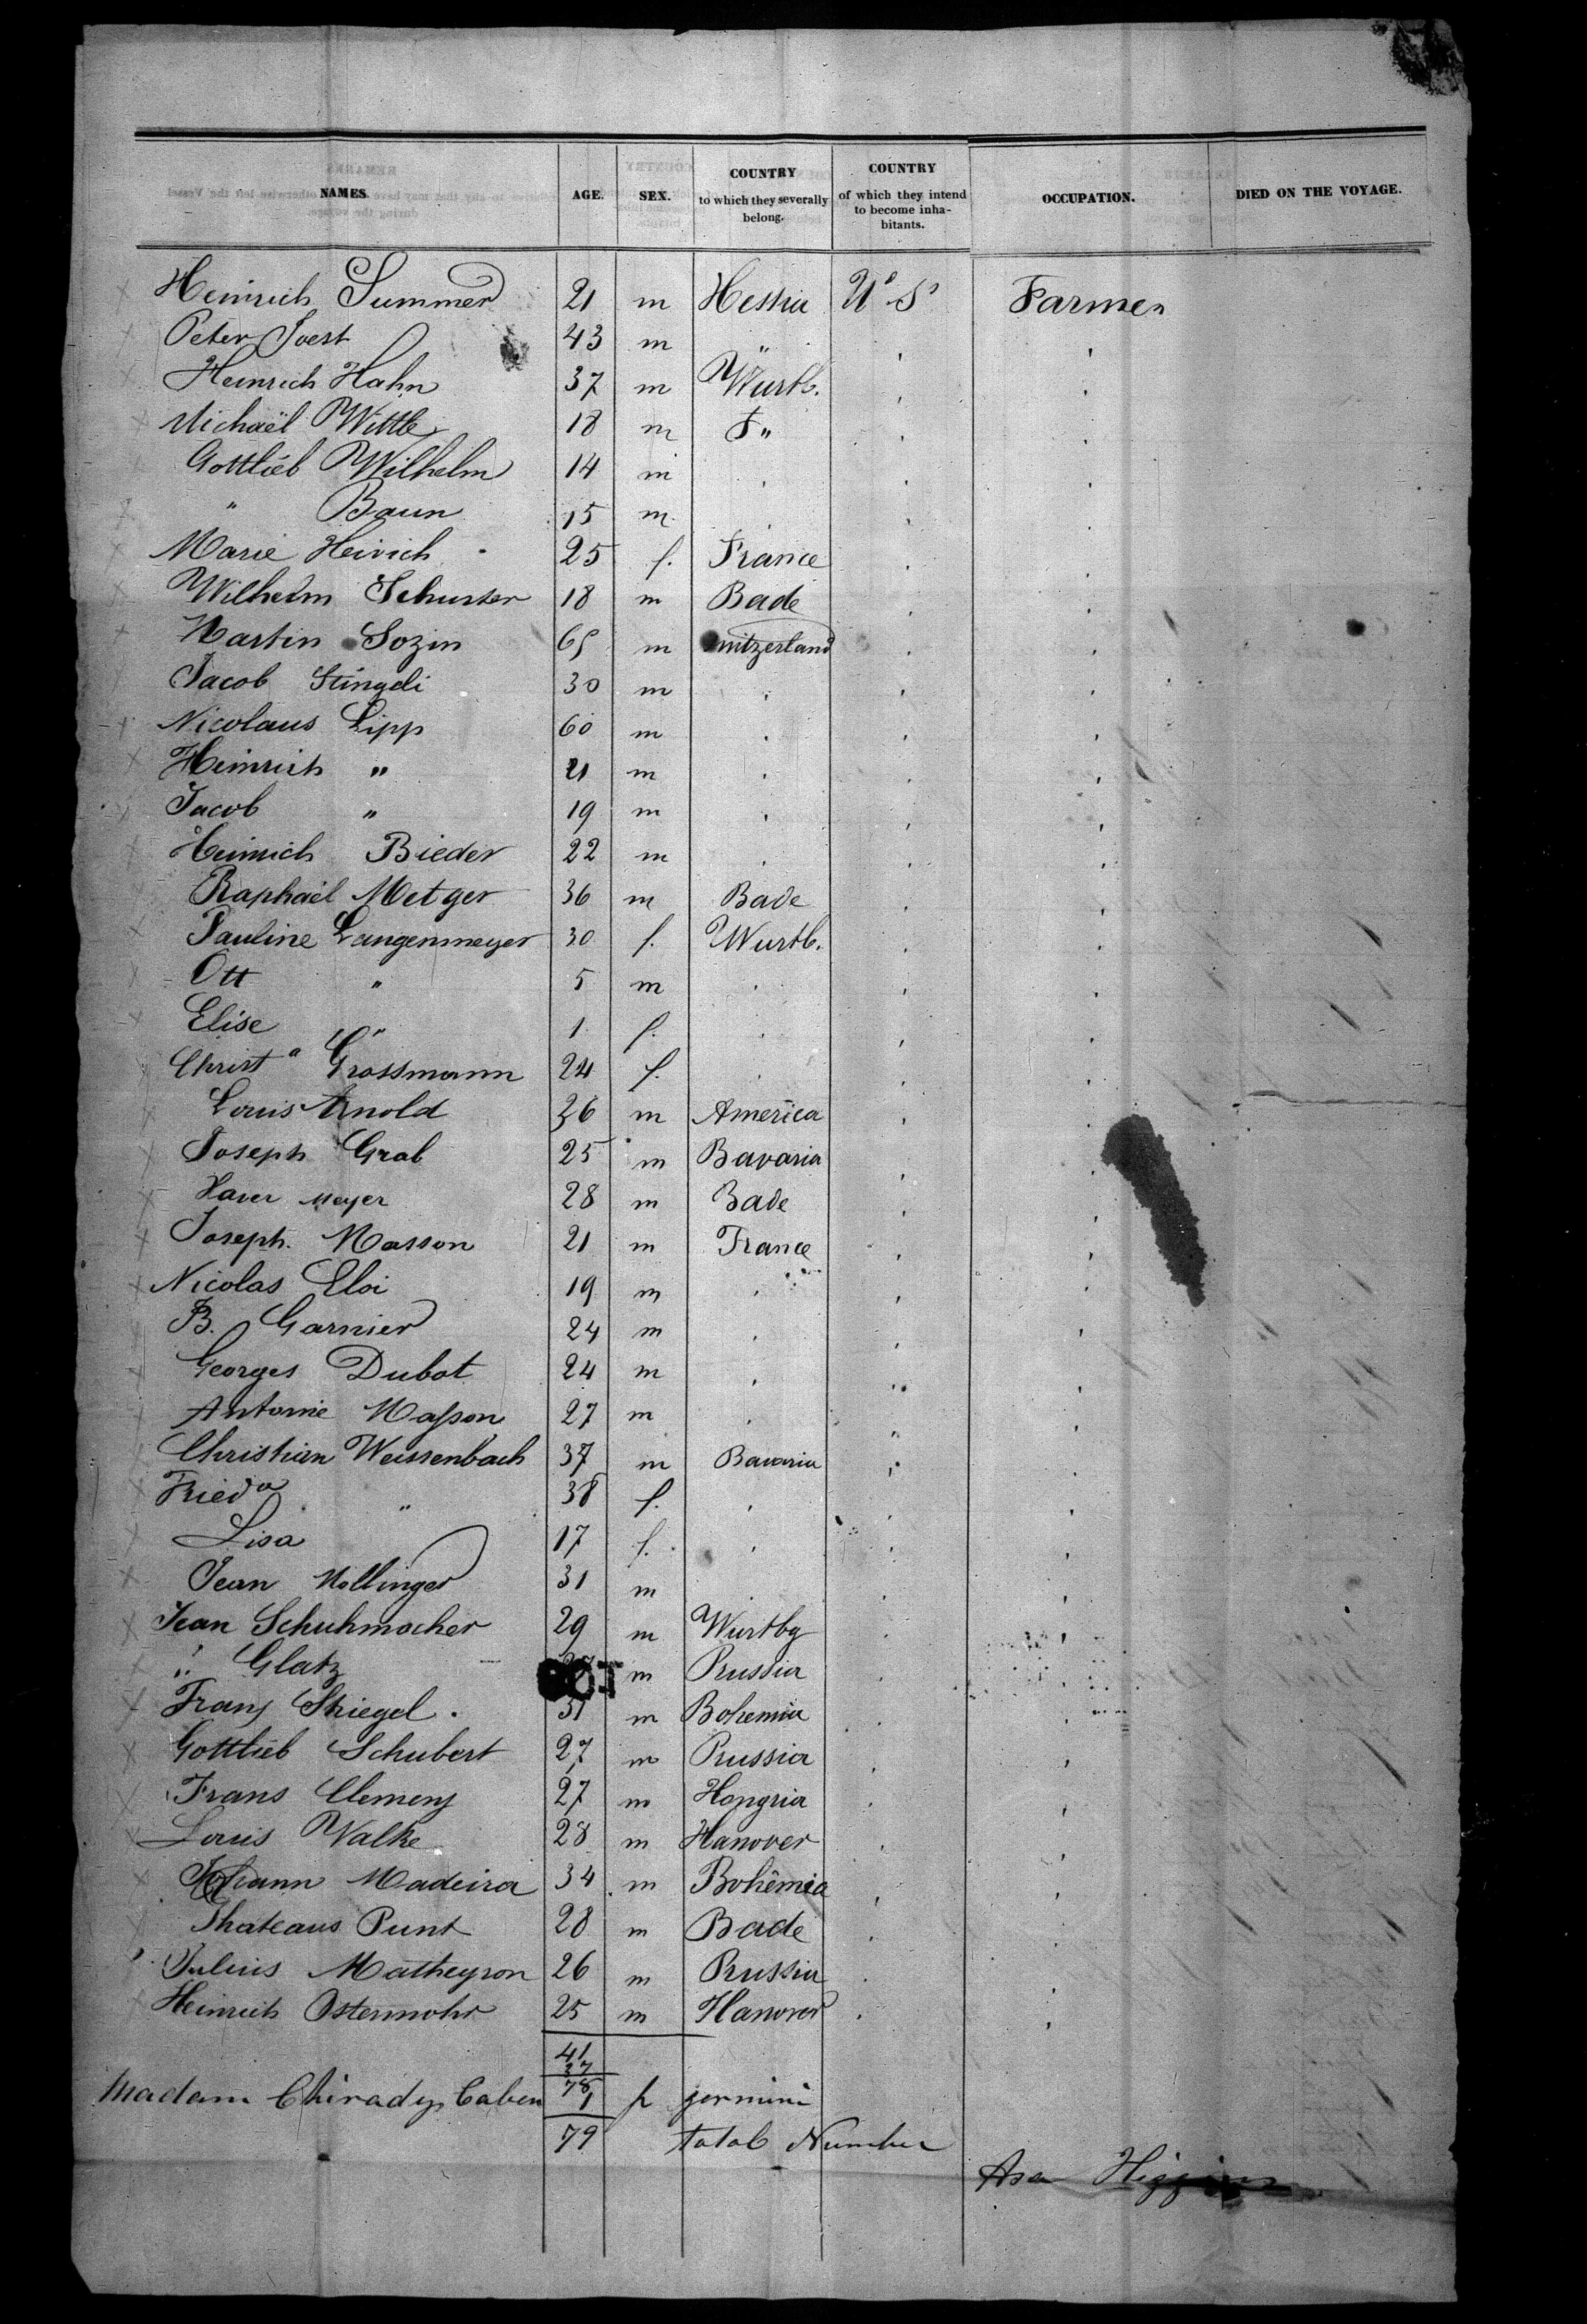 NAMES. AGE. SEX. COUNTRY to which they severally belong. COUNTRY of which they intend to become inhabitants. OCCUPATION. DIED ON THE VOYAGE.
Heinrich Summer 21 m Hessia U S Farmer
Peter Joest 43 m "
Heinrich Hahn 37 m Wurtb.
Michaël Wittle 18 m "
Gottlieb Wilhelm 14 m
" Baun 15 m
Marie Heivich 25 f. France
Wilhelm Schuster 18 m Bade
Martin Sozin 65 m Switzerland
Jacob Stingeli 30 m
Nicolaus Lipp 60 m
Heinrich " 21 m
Jacob " 19 m
Heinrich Bieder 22 m
Raphaël Metger 36 m Bade
Pauline Langenmeyer 30 f. Wurtb.
Ott " 5 m
Elise " 1 f.
Christ a Grossmann 24 f.
Louis Arnold 26 m America
Joseph Grab 25 m Bavaria
Xaver Meyer 28 m Bade
Joseph Masson 21 m France
Nicolas Eloi 19 m
B. Garnier 24 m
Georges Dubot 24 m
Antoine Masson 27 m
Christian Weissenbach 37 m Bavaria
Frieda " 38 f.
Lisa 17 f.
Jean Mollinger 31 m
Jean Schuhmacher 29 m Wurtbg
" Glatz m Prussia
Franz Striegel 31 m Bohemia
Gottlieb Schubert 27 m Prussia
Frans Clemens 27 m Hongria
Louis Valke 28 m Hanover
Johann Madeira 34 m Bohêmia
Thateaus Punt 28 m Bade
Julius Matheyson 26 m Prussia
Heinrich Ostermohr 25 m Hanover
41
37
78
Madam 1 f germini
79 total Number
Asa Higgins